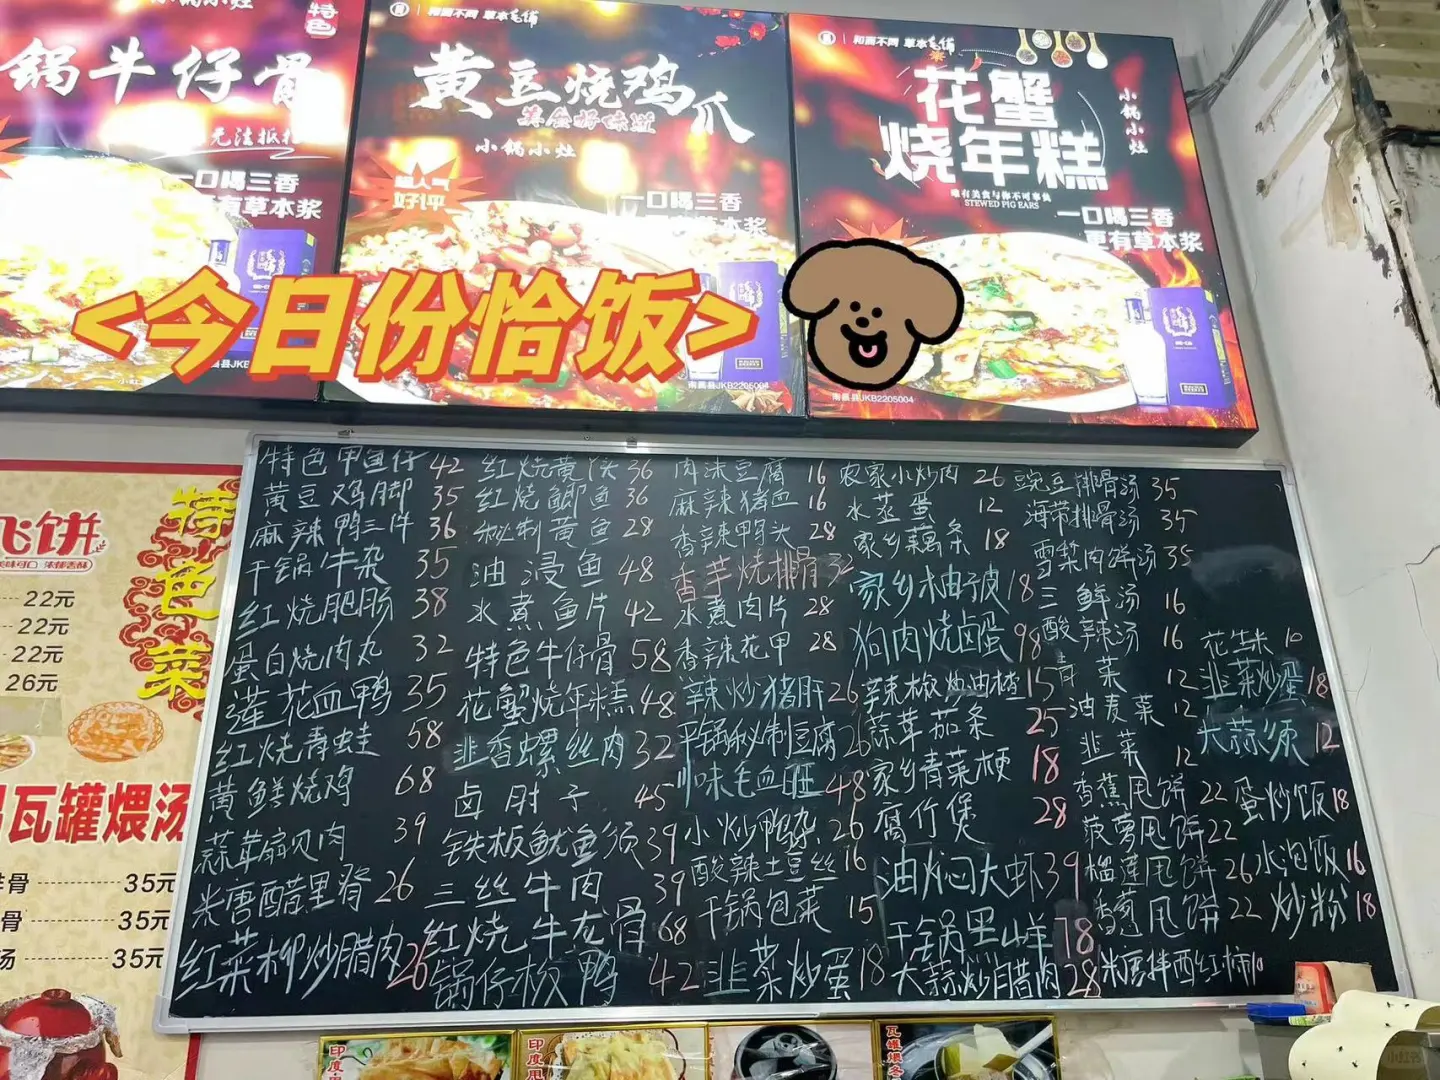 小锅小灶
特色
锅牛仔骨
无法抵抗
一口喝三香
更有草本浆
和而不同 草本毛铺
黄豆烧鸡爪
小锅小灶
超人气
好评
一口喝三香
南昌县JKB2205004
和而不同 草本毛铺
花蟹
烧年糕
小锅小灶
唯有美食与你不可辜负
STEWED PIG EARS
一口喝三香
更有草本浆
南昌县JKB2205004
<今日份恰饭>
飞饼
特色菜
22元
22元
22元
26元
瓦罐煨汤
35元
骨 35元
汤 35元
特色甲鱼仔 42
黄豆鸡脚 35
麻辣鸭三件 36
干锅牛杂 35
红烧肥肠 38
蛋白烧肉丸 32
莲花血鸭 35
红烧青蛙 58
黄鳝烧鸡 68
蒜茸扇贝肉 39
米唐醋里脊 26
红菜柳炒腊肉 26
红烧黄 36
红烧鲫鱼 36
秘制黄鱼 28
油浸鱼 48
水煮鱼片 42
特色牛仔骨 58
花蟹烧年糕 48
韭香螺丝肉 32
卤肘子 45
铁板鱿鱼须 39
三丝牛肉 39
红烧牛龙骨 68
锅仔板鸭 42
肉沫豆腐 16
麻辣猪血 16
香辣鸭头 28
香芋烧排骨 32
水煮肉片 28
香辣花甲 28
辣炒猪肝 26
平锅秘制豆腐 26
川味毛血旺 48
小炒鸭杂 26
酸辣土豆丝 16
干锅包菜 15
韭菜炒蛋 18
农家小炒肉 26
水蒸蛋 12
家乡藕条 18
家乡柚子皮 18
狗肉烧卤蛋 98
辣椒炒油楂 15
蒜茸茄条 25
家乡青菜梗 18
腐竹煲 28
油焖大虾 39
干锅黑山羊 78
大蒜炒腊肉 28
豌豆排骨汤 35
海带排骨汤 35
雪梨肉饼汤 35
三鲜汤 16
酸辣汤 16
青菜 12
油麦菜 12
韭菜 12
香蕉甩饼 22
菠萝甩饼 22
榴莲甩饼 26
香葱甩饼 22
米唐拌西红柿 10
花生米 10
韭菜炒蛋 18
大蒜须 12
蛋炒饭 18
水泡饭 16
炒粉 18
印度
印度甩
瓦罐煨